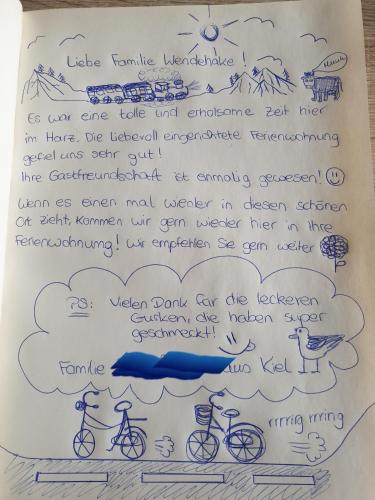 Liebe Familie Wendehake!
Muuuh
Es war eine tolle und erholsame Zeit hier
im Harz. Die liebevoll eingerichtete Ferienwohnung
gefiel uns sehr gut!
Ihre Gastfreundschaft ist einmalig gewesen!
Wenn es einen mal wieder in diesen schönen
Ort zieht, kommen wir gern wieder hier in Ihre
Ferienwohnung! Wir empfehlen Sie gern weiter
PS: Vielen Dank für die leckeren
Gurken, die haben super
geschmeckt!
Familie aus Kiel
rrrrrig rrring